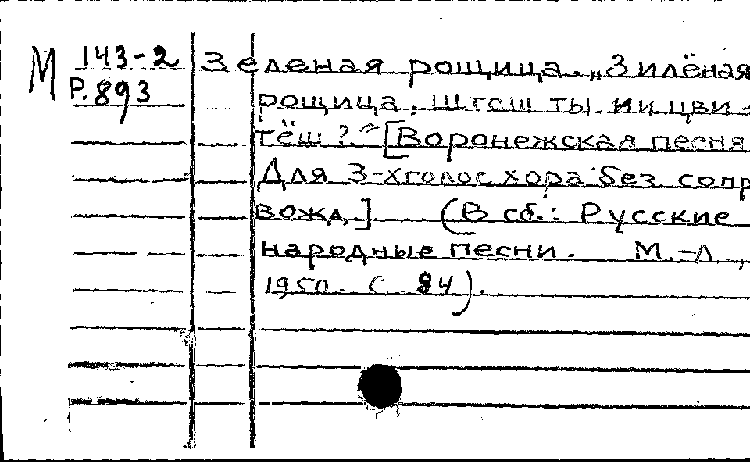 М 143-2 Зеленая рощица. „Зилёная
Р.893 рощица, што ш ты ни цви-
тёш?“ [Воронежская песня
Для 3-хголос хора без сопр
вожд.] (В сб.: Русские
народные песни. М.-Л.,
1950. С 84).